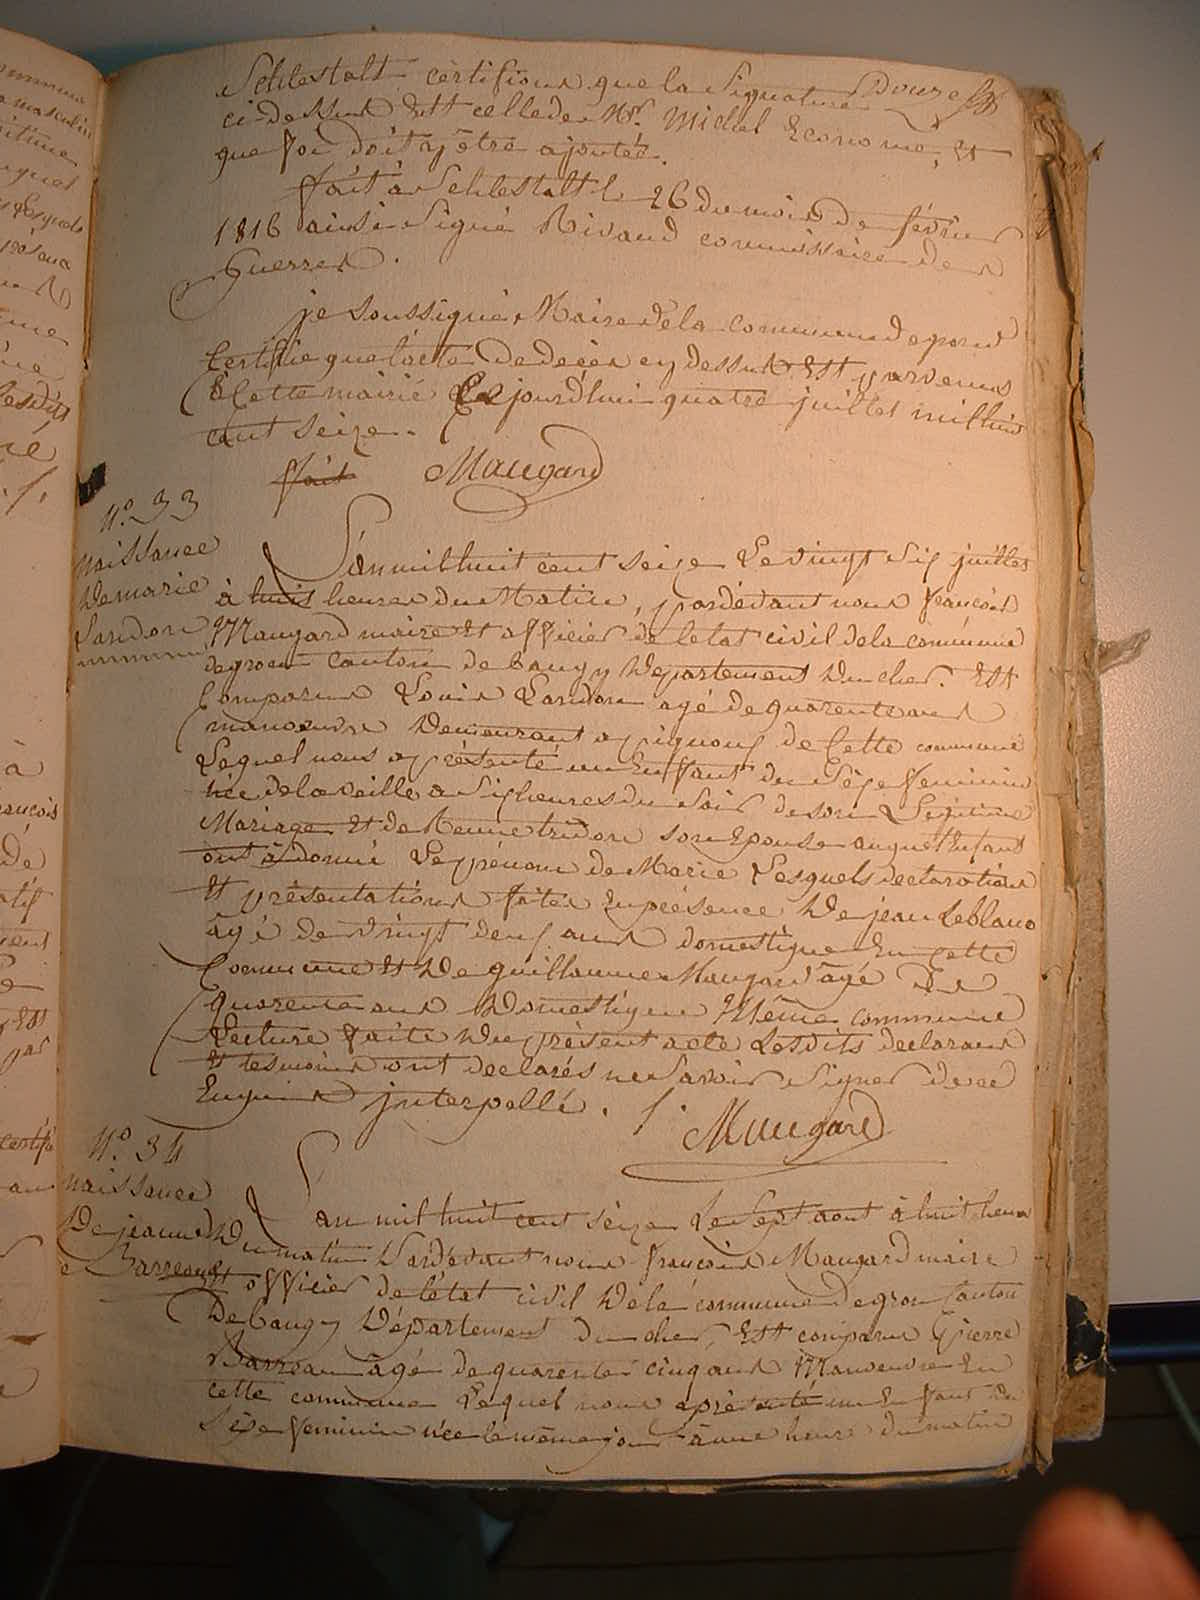 Schlestatt certifions que la Signature Douze
ci-dessus Est celle de Mr. Michel Econome, Et
que foi doit y être ajoutée.
fait à Schlestatt le 26 du mois de février
1816 ainsi Signé Rivaud commissaire des
Guerres.
je soussigné Maire de la commune de grons
Certifie que l'acte De decès cy dessus Est parvenus
à Cette mairie Ce jourd'hui quatre juillet mil huit
cent seize.
fait Maugard
N°. 33
naissance
De marie
Landon
L'an mil huit cent seize Le vingt Six juillet
à huit heures du Matin, pardevant nous francois
Maugard maire Et officier de l'etat civil de la commune
de gron canton de baugy Département du cher. Est
Comparus Louis Landon agé de quarente ans
manoeuvre Demeurant a pignoux de Cette commune
Lequel nous a présenté un Enfant du Sexe feminin
née de la veille a Six heures du Soir de son Legitime
Mariage Et de Renne tridon son Epouse auquel Enfant
ont à donné Le prénom de Marie Lesquels declarations
Et présentations faites En présence De jean Leblanc
âgé de vingt deux ans domestique En Cette
Commune Et De guillaume Maugard âgé De
quarente ans Domestique Même commune
Lecture faite Du présent acte Lesdits declarans
Et tesmoins ont declarés ne Savoir Signer de ce
Enquis interpellé.
Maugard
N°. 34
naissance
De jeanne
Barreau
L'an mil huit cent seize Le Sept aout à huit heures
Du matin Pardevant nous francois Maugard maire
Et officier de l'état civil De la commune de gron Canton
De baugy Département du cher, Est comparu pierre
Barreau âgé de quarente cinq ans Manoeuvre En
cette commune Lequel nous a présenté un Enfant du
Sexe feminin née le même jour à une heure du matin